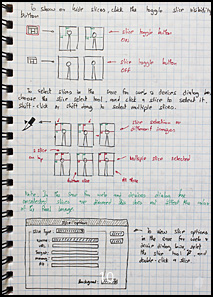 To show or hide slices, click the toggle slice visibility
button
slice toggle button
On
slice toggle button
Off
To select slices in the Save for web & devices dialog box,
choose the slice select tool, and click a slice to select it,
Shift-click or shift-drag to select multiple slices.
slice selection on
different images
a slice
on top
Multiple slice selected
bottom slice
all three
Note: In the Save for web and devices dialog box
unselected slices are dimmed this does not affect the colour
of the final image
Slice Options
Slice Type:
Name:
URL:
Target:
Background:
To view slice options
in the Save for web &
device dialog box, select
the slice tool, and
double-click a slice